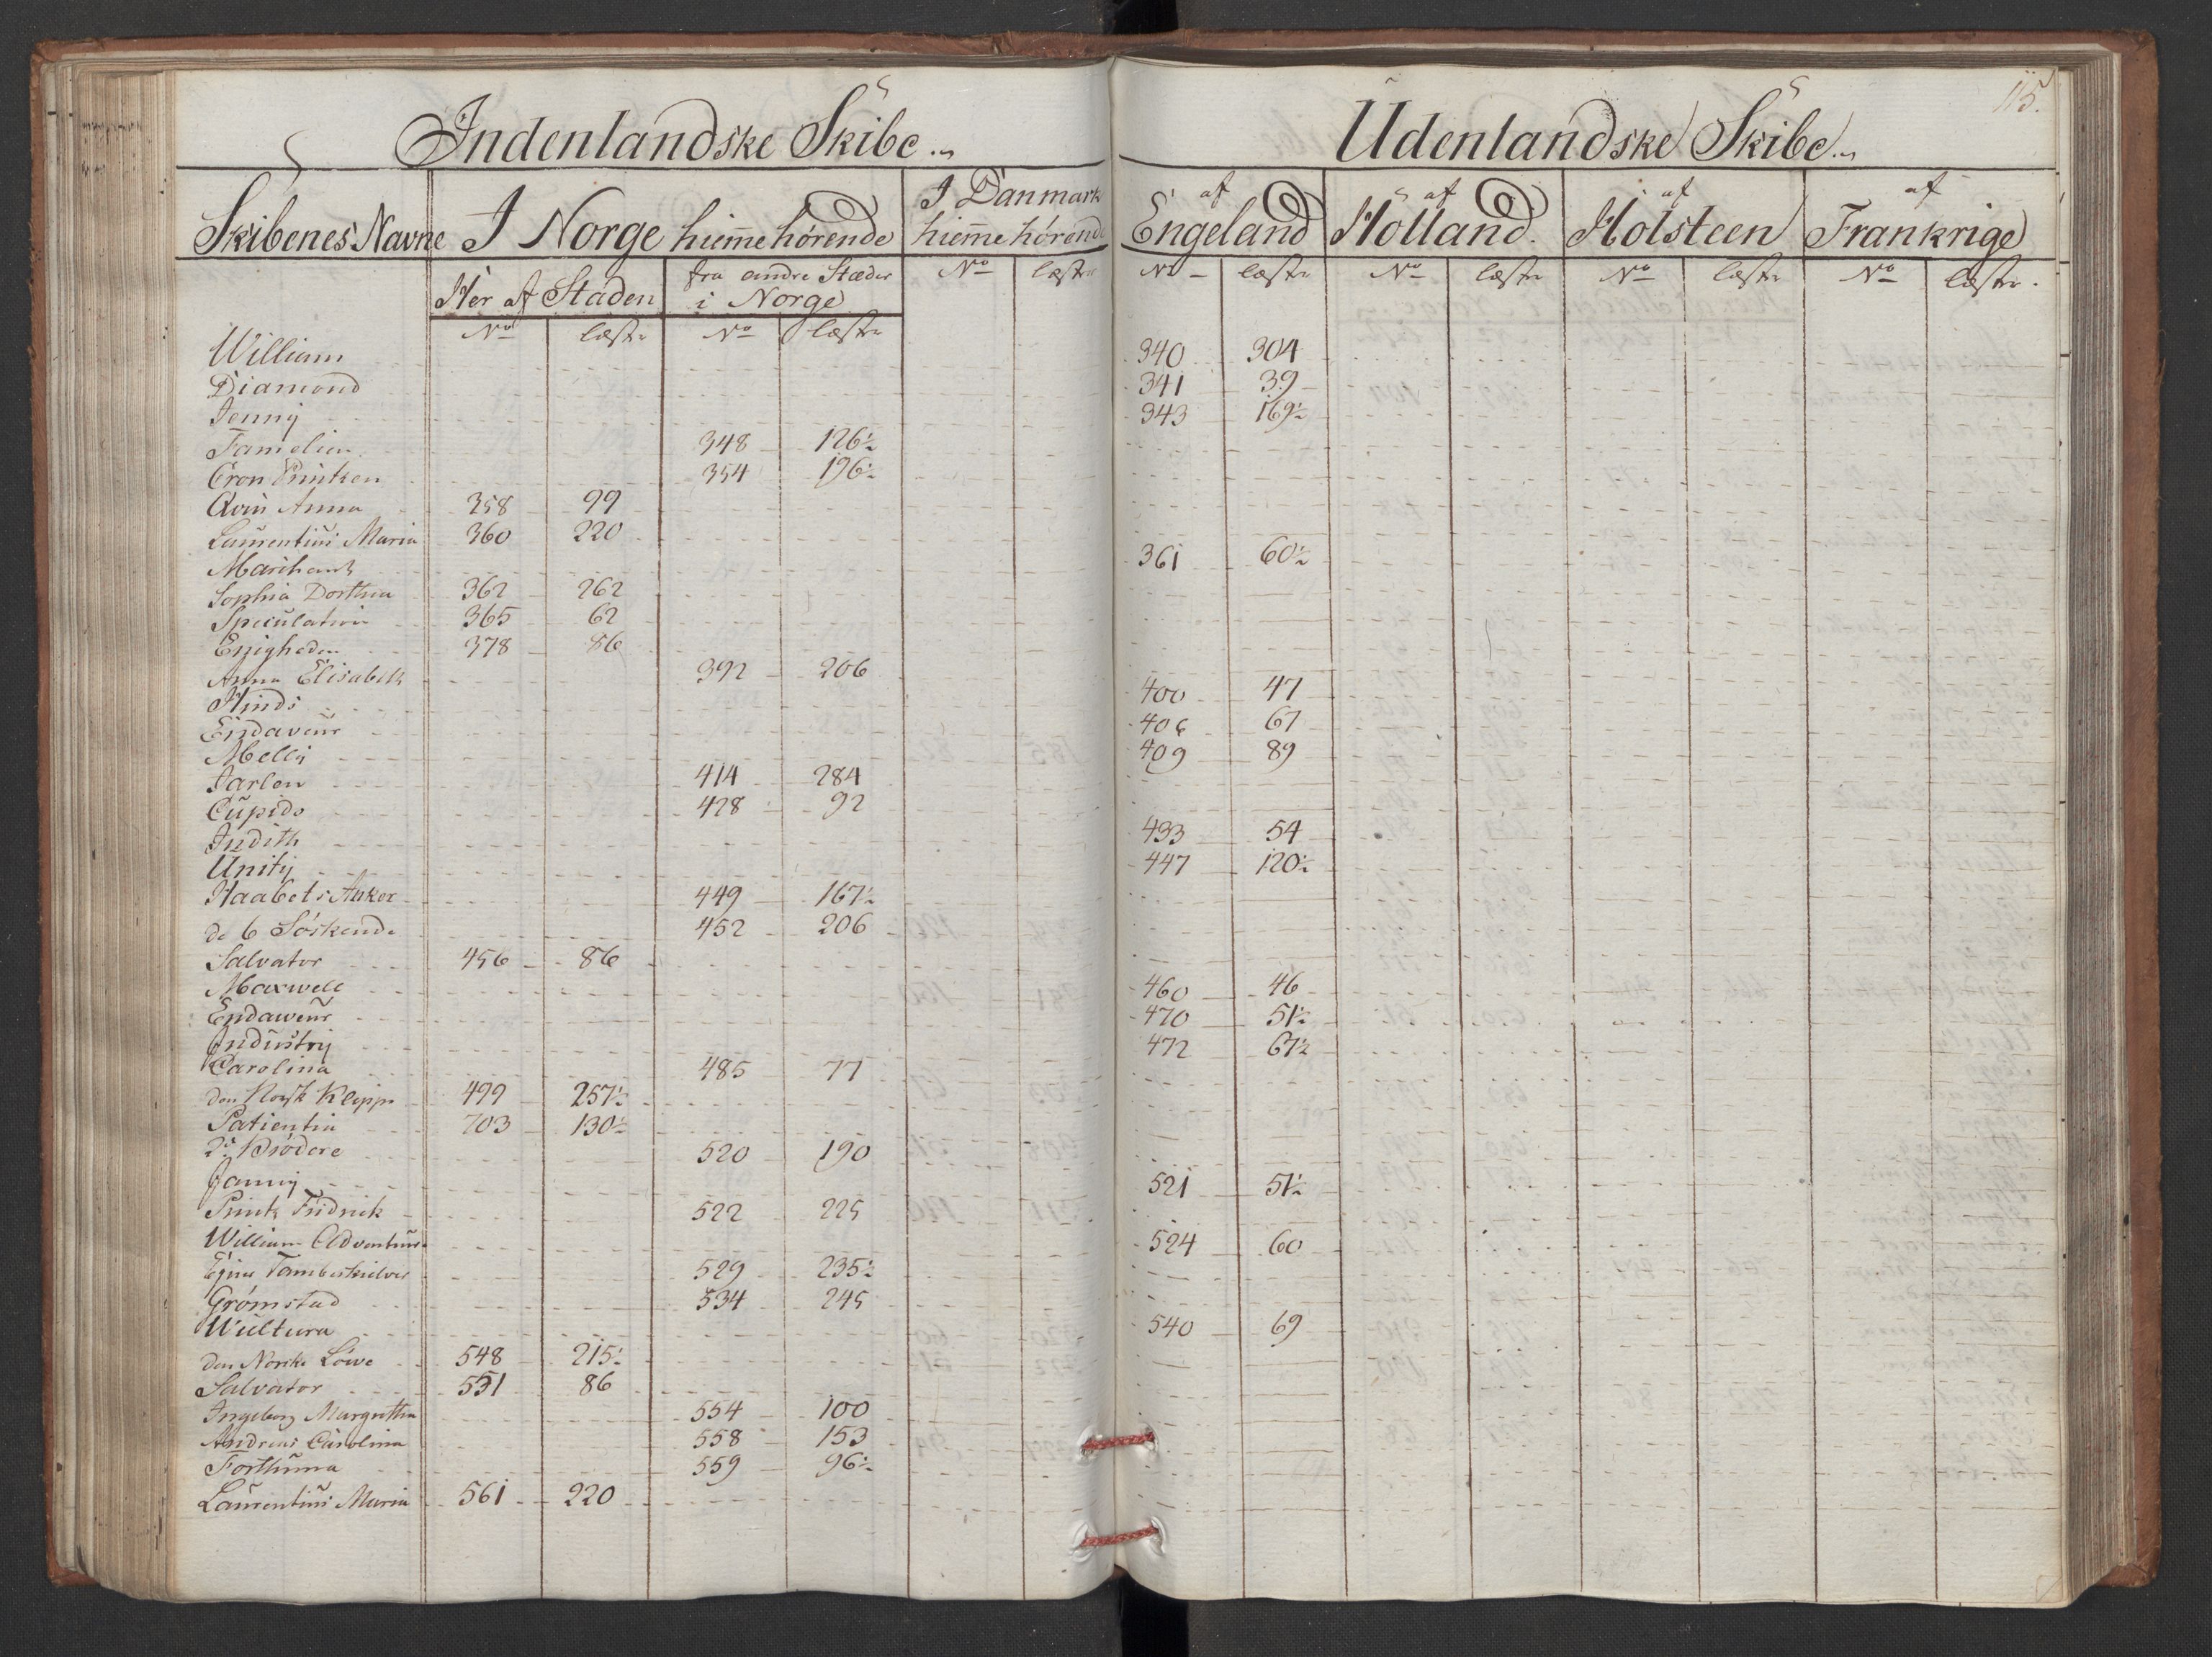 Indenlandske Skibe
Udenlandske Skibe
115.
Skibenes Navne I Norge hiemehørende I Danmark hiemehørende
af Engeland af Holland af Holsteen af Frankrige
Her af Staden fra andre Stæder i Norge No læster No læster No læster No læster No læster
No læster No læster
William 340 304
Diamond 341 39
Jenny 343 169½
Familien 348 126½
Cron Printzen 354 196½
Anna 358 99
Laurentius Maria 360 220
Marchant 361 60½
Sophia Dorthea 362 262
Speculation 365 62
Enigheden 378 86
Anna Elisabeth 392 206
Hinds 400 47
Endaveur 406 67
Melly 409 89
Jarlen 414 284
Cupido 428 92
Judith 433 54
Unity 447 120½
Haabets Anker 449 167½
de 6 Søskende 452 206
Salvator 456 86
Maxwell 460 46
Endaweur 470 51½
Industry 472 67½
Carolina 485 77
den Norsk Klippe 499 257½
Patientia 703 130½
2de Brødere 520 190
Janny 521 51½
Printz Fridrick 522 225
William Adventure 524 60
Ejnar Tamberskielver 529 235½
Grømstad 534 245
Wultura 540 69
den Norske Löwe 548 215½
Salvator 551 86
Ingeborg Margretha 554 100
Andreas Carolina 558 153
Forthuna 559 96½
Laurentius Maria 561 220